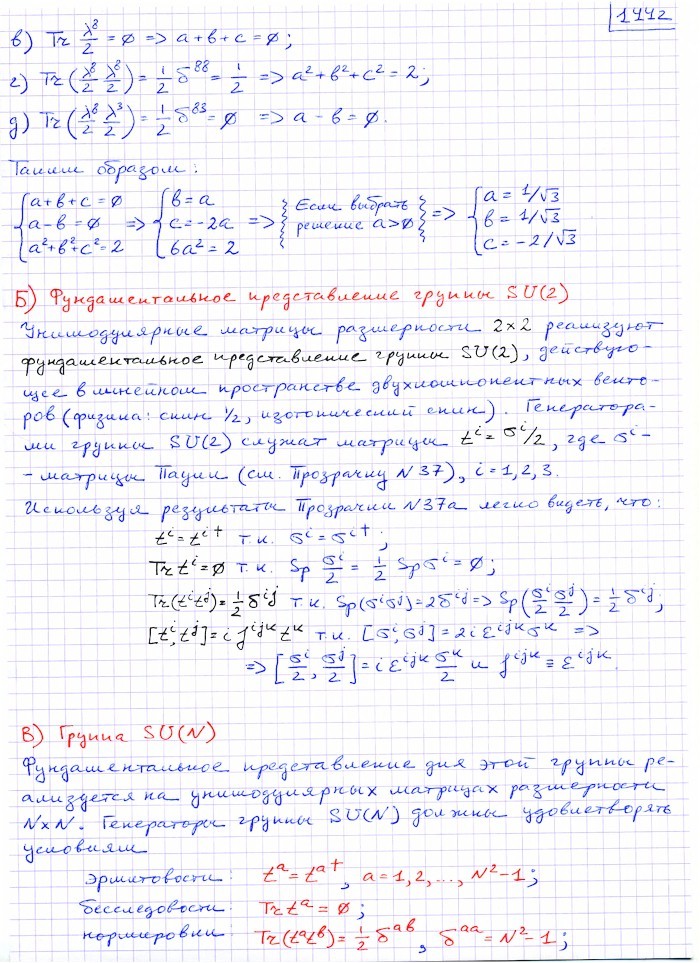 144z
в) Tr λ⁸/2 = ∅ => a+b+c = ∅;
г) Tr(λ⁸/2 λ⁸/2) = 1/2 δ⁸⁸ = 1/2 => a²+b²+c² = 2;
д) Tr(λ⁸/2 λ³/2) = 1/2 δ⁸³ = ∅ => a - b = ∅.
Таким образом:
{ a+b+c = ∅ => { b = a => { Если выбрать } => { a = 1/√3
a-b = ∅ c = -2a решение a>∅ b = 1/√3
a²+b²+c² = 2 6a² = 2 c = -2/√3
Б) Фундаментальное представление группы SU(2)
Унимодулярные матрицы размерности 2×2 реализуют
фундаментальное представление группы SU(2), действую-
щее в линейном пространстве двухкомпонентных векто-
ров (физика: спин 1/2, изотопический спин). Генератора-
ми группы SU(2) служат матрицы tⁱ = σⁱ/2, где σⁱ -
- матрицы Паули (см. Прозрачку N 37), i = 1, 2, 3.
Используя результаты Прозрачки N 37а легко видеть, что:
tⁱ = tⁱ⁺ т.к. σⁱ = σⁱ⁺;
Tr tⁱ = ∅ т.к. Sp σⁱ/2 = 1/2 Sp σⁱ = ∅;
Tr(tⁱtʲ) = 1/2 δⁱʲ т.к. Sp(σⁱσʲ) = 2δⁱʲ => Sp(σⁱ/2 σʲ/2) = 1/2 δⁱʲ;
[tⁱ, tʲ] = i fⁱʲᵏ tᵏ т.к. [σⁱ, σʲ] = 2i εⁱʲᵏ σᵏ =>
=> [σⁱ/2, σʲ/2] = i εⁱʲᵏ σᵏ/2 и fⁱʲᵏ ≡ εⁱʲᵏ.
В) Группа SU(N)
Фундаментальное представление для этой группы ре-
ализуется на унимодулярных матрицах размерности
N×N. Генераторы группы SU(N) должны удовлетворять
условиям
эрмитовости: tᵃ = tᵃ⁺, a = 1, 2, ..., N²-1;
бесследовости: Tr tᵃ = ∅;
нормировки: Tr(tᵃtᵇ) = 1/2 δᵃᵇ, δᵃᵃ = N²-1;